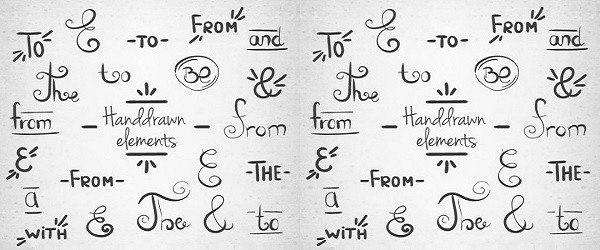 To & -TO- FROM and
The to Be &
from - Handdrawn - from
elements
& -FROM- & -THE-
a
with & The & to
To & -TO- FROM and
The to Be &
from - Handdrawn - from
elements
& -FROM- & -THE-
a
with & The & to